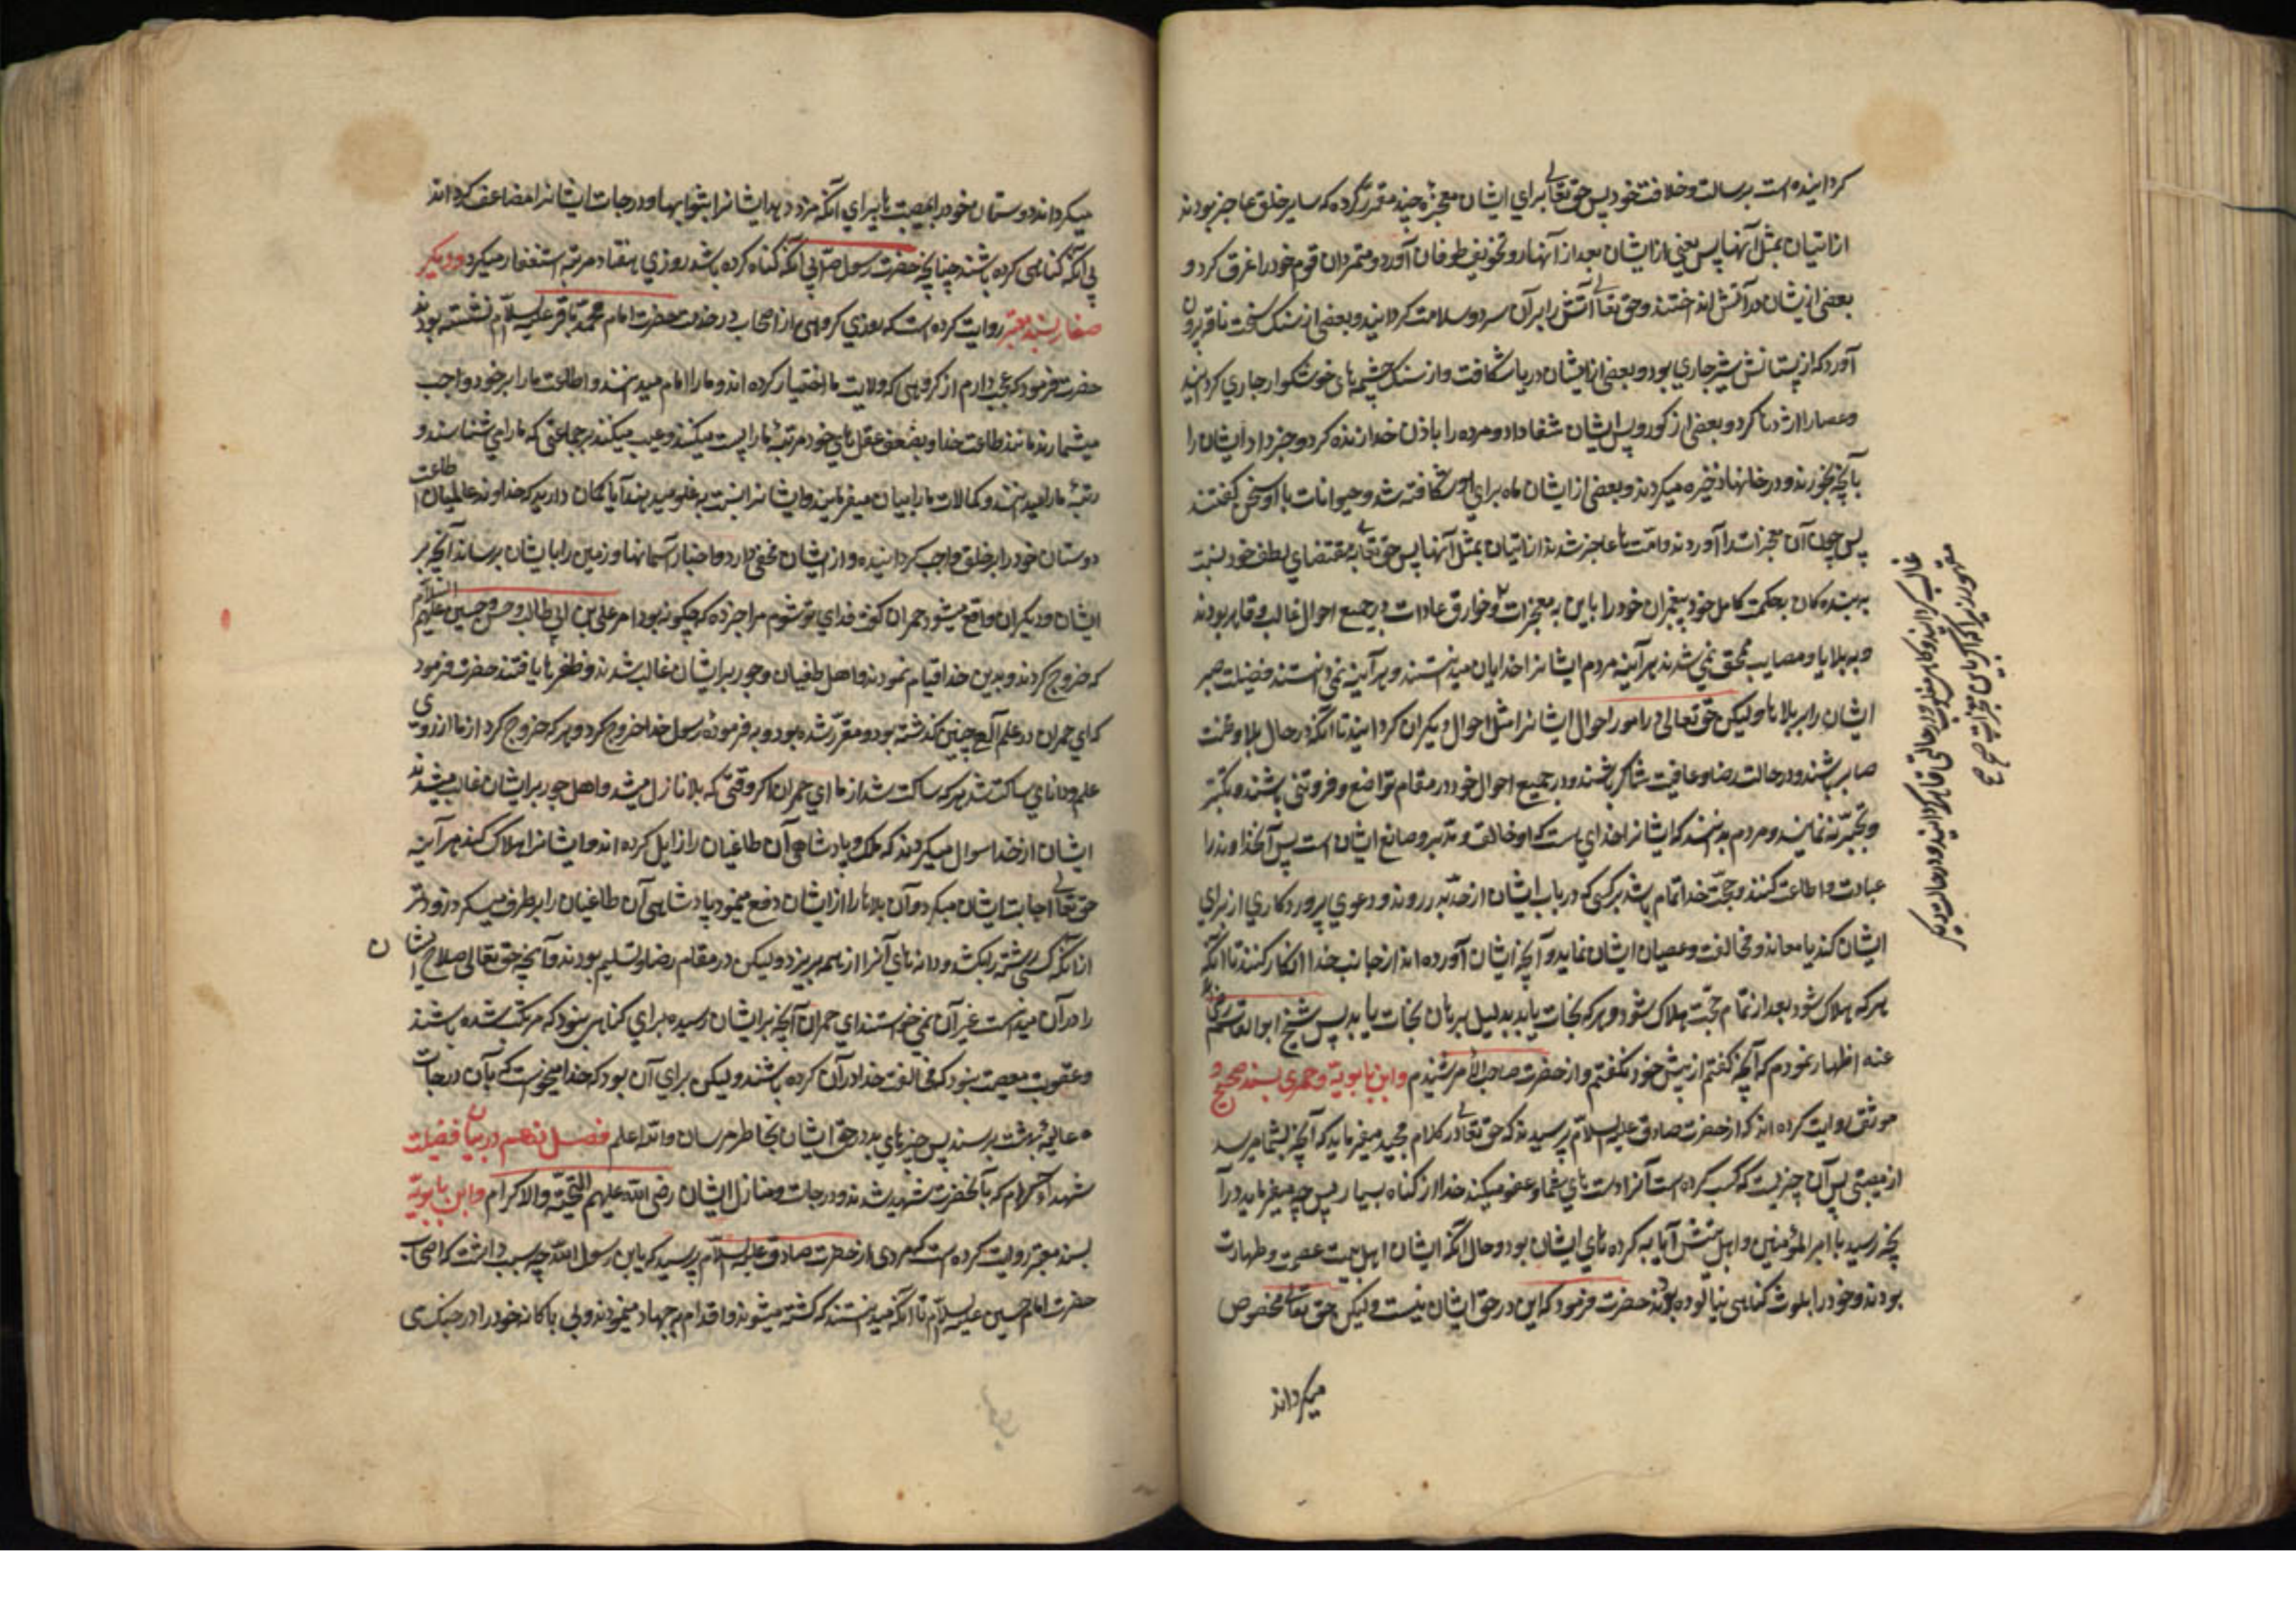 گردانیده است برسالت و خلافت خود پس حق تعالی برای ایشان معجزه چند مقرر کرده که سایر خلق عاجز بودند
از اتیان بمثل آنها پس بعضی از ایشان بعد از و تخویف طوفان آورد و متمردان قوم خود را غرق کرد و
بعضی از ایشان در آتش انداختند و حق تعالی آتش را بر آن سرد و سلامت گردانید و بعضی از سنک سخت ناقه بیرون
آورد که از پستانش شیر جاری بود و بعضی از ایشان دریا شکافت و از سنک چشیمه‌های خوشکوار جاری گردانید
و عصا را اژدها کرد و بعضی از کور و پیس ایشان شفا داد و مرده را باذن خدا زنده کرد و خبر داد ایشان را
بآنچه بخورند و در خانها ذخیره میکردند و بعضی از ایشان ماه برای او شکافته شد و حیوانات با او سخن گفتند
پس چون آن معجزات را آوردند و امتها عاجز شدند از اتیان بمثل آنها پس حق تعالی بمقتضای لطف خود نسبت
به بنده کان بحکمت کامل خود پیغمبران خود را با این معجزات و خوارق عادات در جمیع احوال غالب و قاهر بودند
و به بلایا و مصایب ممتحن نمی شدند هر آینه مردم ایشانرا خدایان میدانستند و هر آینه نمی دانستند فضیلت صبر
ایشان را بر بلاها و لیکن حق تعالی در امور احوال ایشانرا مثل احوال دیکران گردانید تا آنکه در حال بلا و محنت
صابر باشند و در حالت رضا و عافیت شاکر باشند و در جمیع احوال خود در مقام تواضع و فروتنی باشند و تکبر
و تجبر نه نمایند و مردم بدانند که ایشانرا خدای است که او خالق و مدبر و صانع ایشان است پس آنخداوند را
عبادت و اطاعت کنند و حجت خدا تمام باشد بر کسی که در باب ایشان از حد بدر روند و دعوی پروردکاری از برای
ایشان کند یا معانده و مخالفت و عصیان ایشان نماید و آنچه ایشان آورده اند از جانب خدا انکار کنند تا آنکه
هر که هلاک شود بعد از تمام حجت هلاک شود و هر که نجات یابد بدلیل برهان نجات یابد پس شیخ ابوالقاسم رضی
عنه اظهار نمودم که آنچه گفتم از پیش خود نکفتم و از حضرت صاحب الأمر شنیدم وابن بابویه و حمیری بسند صحیح و
موثق روایت کرده اند که از حضرت صادق علیه السلام پرسیدند که حق تعالی در کلام مجید میفرماید که آنچه بشما میرسد
از مصیبتی پس آن چیزیست که کسب کرده است آنرا دست های شما و عفو میکند خدا از گناه بسیار پس چه میفرماید در آ
نچه رسید با امیرالمؤمنین و اهل بیتش آیا به کرده های ایشان بود و حال آنکه ایشان اهل بیت عصمت و طهارت
بودند و خود را بلوث گناهی نیالوده بودند حضرت فرمود که این در حق ایشان نیست و لیکن حق تعالی مخصوص
میگرداند
میگرداند دوستان خود را بمصیبت ها برای آنکه مزد دهد ایشانرا بثوابها و درجات ایشانرا مضاعف گرداند
بی آنکه گناهی کرده باشند چنانچه حضرت رسول ص بی آنکه گناه کرده باشد روزی هفتاد مرتبه استغفار میکرد و دیکر
صفار بسند معتبر روایت کرده است که روزی گروهی از اصحاب در خدمت حضرت امام محمد باقر علیه السلام نشسته بودند
حضرت فرمود که عجب دارم از گروهی که ولایت ما اختیار کرده اند و ما را امام میدانند و اطاعت ما را بر خود واجب
میشمارند مانند طاعت خدا و بضعف عقل های خود مرتبه ما را پست میکنند و عیب میکنند بر جماعتی که ما را می شناسند و
رتبه ما را میدانند و کمالات ما را بیان میفرمایند و ایشانرا نسبت به غلو میدهند آیا کمان دارید که خداوند عالمیان طاعت
دوستان خود را بر خلق واجب گردانیده و از ایشان مخفی دارد و اخبار آسمانها و زمین را بایشان برساند آنچه بر
ایشان و دیگران واقع میشود حمران گفت فدای تو شوم مرا خبر ده که چکونه بود امر علی بن ابی طالب و حسن و حسین علیهم السلام
که خروج کردند و بدین خدا قیام نمودند و اهل طغیان و جور بر ایشان غالب شدند و ظفر ها یافتند حضرت فرمود
که ای حمران در علم آلهی چنین گذشته بود و مقرر شده بود و به فرموده رسول خدا خروج کرد و هر که خروج کرد از ما از روی
علم و دانای ساکت شد هر که ساکت شد از ما ای حمران اکر وقتی که بلا نازل میشد و اهل جور بر ایشان غالب میشدند
ایشان از خدا سوال میکردند که ملک و پادشاهی آن طاغیان را زایل کرده اند و ایشانرا هلاک کند هر آینه
حق تعالی اجابت ایشان میکرد و آن بلاها را از ایشان دفع مینمود و پادشاهی آن طاغیان را برطرف میکرد زودتر
از آنکه کسی رشته را بکشد و دانه های آنرا از هم بریزد و لیکن در مقام رضا و تسلیم بودند و آنچه حق تعالی صلاح ایشان
را در آن میدانست غیر آن نمی خواستند ای حمران آنچه بر ایشان رسیده برای گناهی نبود که مرتکب شده باشند
و عقوبت معصیت نبود که مخالفت خدا در آن کرده باشند و لیکن برای آن بود که خدا میخواست که بآن درجات
عالیه بهشت برسند پس چیزهای بد در حق ایشان بخاطر مرسان والله اعلم فصل نهم در بیان فضیلت
شهداء کرام که بآنحضرت شهید شدند و درجات و منازل ایشان رضی الله علیهم التحیة والاکرام وابن بابویه
بسند معتبر روایت کرده است که مردی از حضرت صادق علیه السلام پرسید که یابن رسول الله چه سبب داشت که اصحاب
حضرت امام حسین علیه السلام با آنکه میدانستند که کشته میشوند و اقدام بر جهاد مینمودند و بی باکانه خود را در جنک می